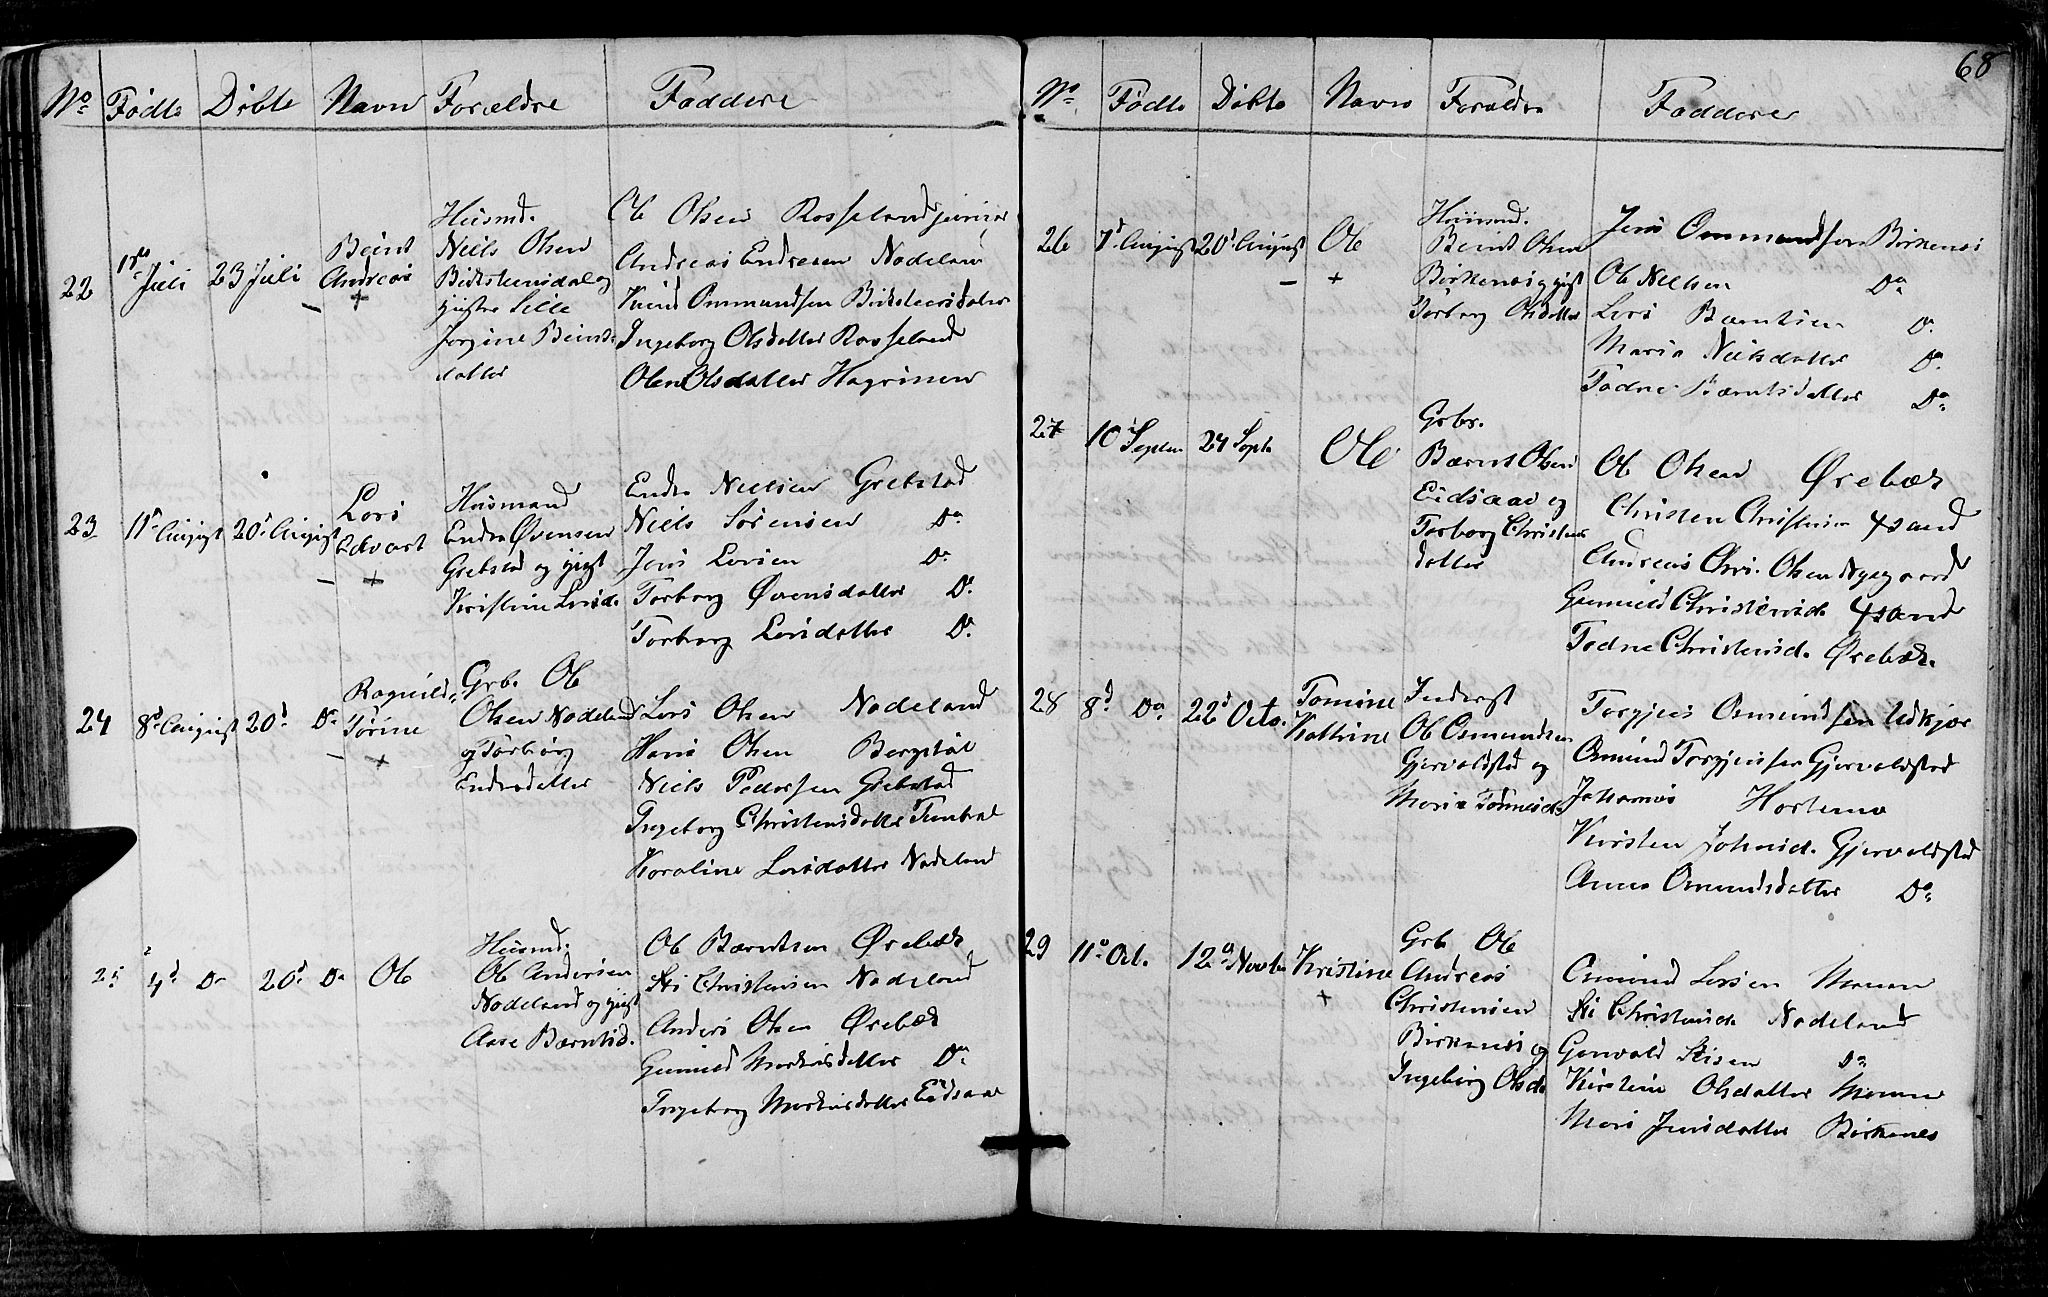 No Fødte Døbte Navn Forældre Faddere
22 1ste Juli 23 Juli Beint Andreas +
Husmd.
Niels Olsen
Birketeinsdal og
gifte Sille
Jorgine Beints-
datter
Ole Olsen Rosseland
Andreas Endresen Nodeland
Knud Ommundsen
Ingeborg Olsdatter Rosseland
Olene Olsdatter
23 11te August 20d August Lars Edvart +
Husmand
Endre Øvensen
Grebstad og gift
Kristine Larsd.
Endre Nielsen Grebstad
Niels Sørensen Do
Jens Larsen Do
Torborg Øvensdatter Do
Torborg Larsdatter Do
24 8d August 20d Do Ragnild Tørine +
Grb. Ole
Olsen Nodeland
og Torborg
Endredatter
Lars Olsen Nodeland
Hans Olsen Bergstøl
Niels Pedersen Grebstad
Ingeborg Christensdatter
Karoline Larsdatter Nodeland
25 4d Do 20d Do Ole
Husmd.
Ole Andersen
Nodeland og gift
Aase Bærntsd.
Ole Bærntsen Ørebæk
Sti Christensen Nodeland
Anders Olsen Ørebæk
Gunild Markusdatter Do
Ingeborg Markusdatter Eidsaae
68
No Fødte Døbte Navn Forældre Faddere
26 7d August 20d August Ole +
Husmd.
Beint Olsen
Birkenes og gift
Torborg Olsdatter
Jens Ommundsen Birkenes
Ole Nielsen Do
Lars Bærntsen Do
Maria Nielsdatter Do
Todne Bærntsdatter Do
27 10 Septem 24 Septb Ole
Grbr.
Bærnt Olsen
Eidsaae og
Torborg Christens
datter
Ole Olsen Ørebæk
Christen Christensen 4sand
Andreas Chri. Olsen Nygaard
Gunuld Christensd. 4sand
Todne Christensd. Ørebæk.
28 8d Do 22d Octo. Tomine Kathrine
Inderst
Ole Osmundsen
Gjervoldstad og
Maria Tønnesd.
Torgjus Osmundsen Udkjær
Osmund Torgjussen Gjervoldstad
Johannes Hortemo
Kirsten Johnsd. Gjervoldstad
Anna Osmundsdatter Do
29 11te Oct. 12te Novbr Kristine +
Grb Ole
Andreas
Christensen
Birkenes og
Ingeborg Olsd.
Osmund Larsen
Sti Christensen Nodeland
Gunvald Stisen Do
Kirstine Olsdatter
Mari Jensdatter Birkenes